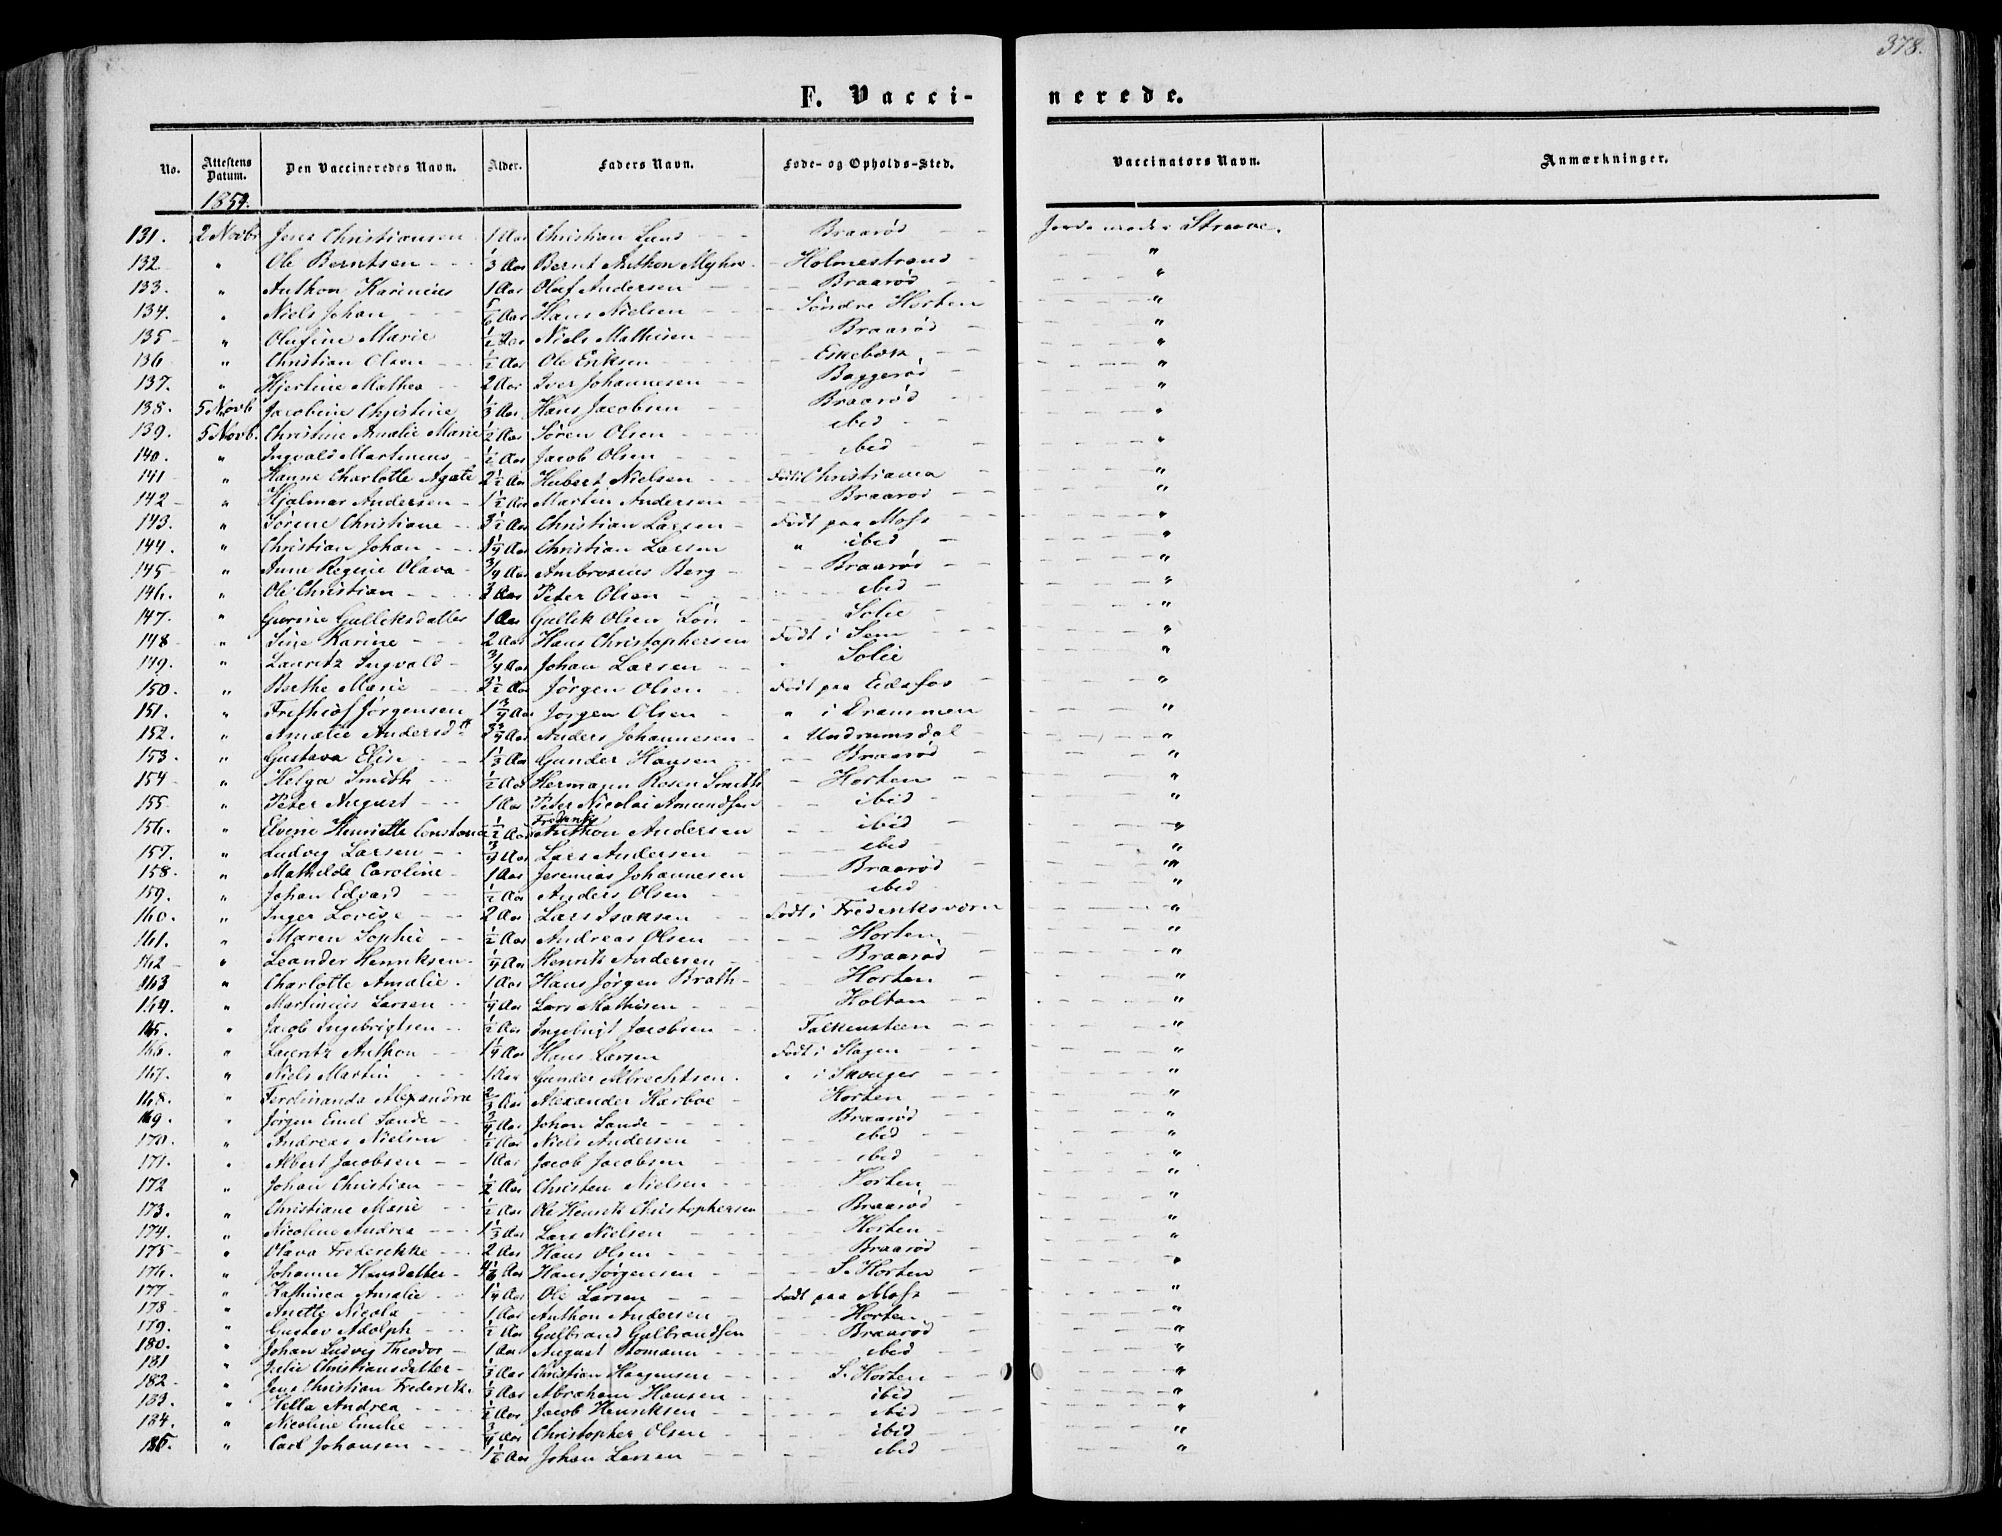 378.
F. Vaccinerede.
No. Attestens Datum. Den Vaccineredes Navn. Alder. Faders Navn. Føde- og Opholds-Sted. Vaccinators Navn. Anmærkninger.
1854.
131. 2 Novb. Jens Christiansen 1 Aar Christian Lund Braarød Jordemoder Struve.
132 " Ole Berntsen 1/3 Aar Bernt Anthon Myhre Holmestrand "
133. " Anthon Karinius 1 Aar Olaf Andersen Braarød "
134. " Niels Johan 5/6 Aar Hans Nielsen Søndre Horten "
135 " Olufine Marie 1/2 Aar Niels Mathisen Braarød "
136 " Christian Olsen 1/2 Aar Ole Eriksen Eskebæk "
137. " Hjertine Mathea 2 Aar Iver Johannesen Baggerød "
138. 5 Novb Jacobine Christine 1/3 Aar Hans Jacobsen Braarød "
139. 5 Novb. Christine Amalie Marie 1/2 Aar Søren Olsen ibid "
140. " Ingvald Martinius 1/2 Aar Jacob Olsen ibid "
141 " Hanne Charlotte Agate 2 1/2 Aar Hubert Nielsen Født i Christiania "
142 " Hjalmar Andersen 1 1/2 Aar Martin Andersen Braarød "
143. " Sørene Christiane 3 1/2 Aar Christian Larsen Født paa Moss "
144. " Christian Johan 1 1/4 Aar Christian Larsen " ibid "
145 " Anne Regine Olava 3/4 Aar Ambrosius Berg Braarød "
146. " Ole Christian 3 Aar Peter Olsen ibid "
147. " Gurine Gulleksdatter 1 Aar Gullik Olsen Solie "
148 " Sine Karine 2 Aar Hans Christophersen Født i Sem "
149. " Lauritz Ingvald 3/4 Aar Johan Larsen Solie "
150. " Berthe Marie 3 1/2 Aar Jørgen Olsen Født paa Eidsfos "
151. " Frithiof Jørgensen 1 3/4 Aar Jørgen Olsen " i Drammen "
152. " Amalie Andersd. 3 3/4 Aar Anders Johannesen " Undrumsdal "
153. " Gustava Elise 1/3 Aar Gunder Hansen Braarød "
154 " Helga Smith 1/2 Aar Hermann Rosen Smith Horten "
155 " Peter August 1 Aar Peter Nicolai Amundsen ibid "
156. " Elvine Henriette Constance 1/2 Aar Frederik Anthon Andersen ibid "
157. " Ludvig Larsen 3/4 Aar Lars Andersen ibid "
158. " Mathilde Caroline 1 Aar Jeremias Johannesen Braarød "
159. " Johan Edvard 1/2 Aar Anders Olsen ibid "
160. " Inger Lovise 2 Aar Lars Isaksen Født i Frederiksværn "
161. " Maren Sophie 1/2 Aar Andreas Olsen Horten "
162 " Leander Henriksen 1/4 Aar Henrik Andersen Braarød "
163 " Charlotte Amalie 1 Aar Hans Jørgen Brath Horten "
164. " Martinius Larsen 1/4 Aar Lars Mathisen Holtan "
165. " Jacob Ingebrigtsen 1/2 Aar Ingebrigt Jacobsen Falkensteen "
166. " Lauritz Anthon 1 1/4 Aar Hans Larsen Født i Slagen "
167. " Niels Martin 1 Aar Gunder Albrechtsen " i Skouger "
168. " Ferdinanda Alexandra 2/3 Aar Alexander Harboe Horten "
169. " Jørgen Emil Sande 3/4 Aar Johan Sande Braarød "
170. " Andreas Nielsen 1/2 Aar Niels Andersen ibid "
171. " Albert Jacobsen 1 Aar Jacob Jacobsen ibid "
172 " Johan Christian 1/2 Aar Christen Nielsen Horten "
173. " Christiane Marie 1/2 Aar Ole Henrik Christophersen Braarød "
174. " Nicoline Andrea 1 1/2 Aar Lars Nielsen Horten "
175 " Olava Frederikke 2 Aar Hans Olsen Braarød "
176. " Johanne Hansdatter 4 1/6 Aar Hans Jørgensen S. Horten "
177 " Kathinca Amalie 1 1/4 Aar Ole Larsen Født paa Moss "
178 " Anette Nicola 1 Aar Anthon Andersen Horten "
179. " Gustav Adolph 1/2 Aar Gulbrand Gulbrandsen Braarød "
180. " Johan Ludvig Theodor 1 Aar August Bomann ibid "
181 " Julie Christiansdatter 1/3 Aar Christian Haagensen S. Horten "
182 " Jens Christian Frederik 1/3 Aar Abraham Hansen ibid "
183. " Hella Andrea 1/2 Aar Jacob Henriksen ibid "
184. " Nicoline Emilie 3/4 Aar Christopher Olsen ibid "
185. " Carl Johansen 1 1/6 Aar Johan Larsen ibid "